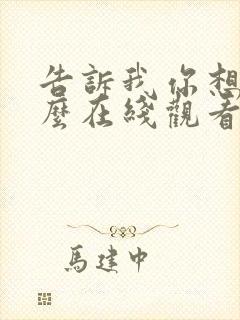 告訴我你想
麼在綫觀看
馬建中